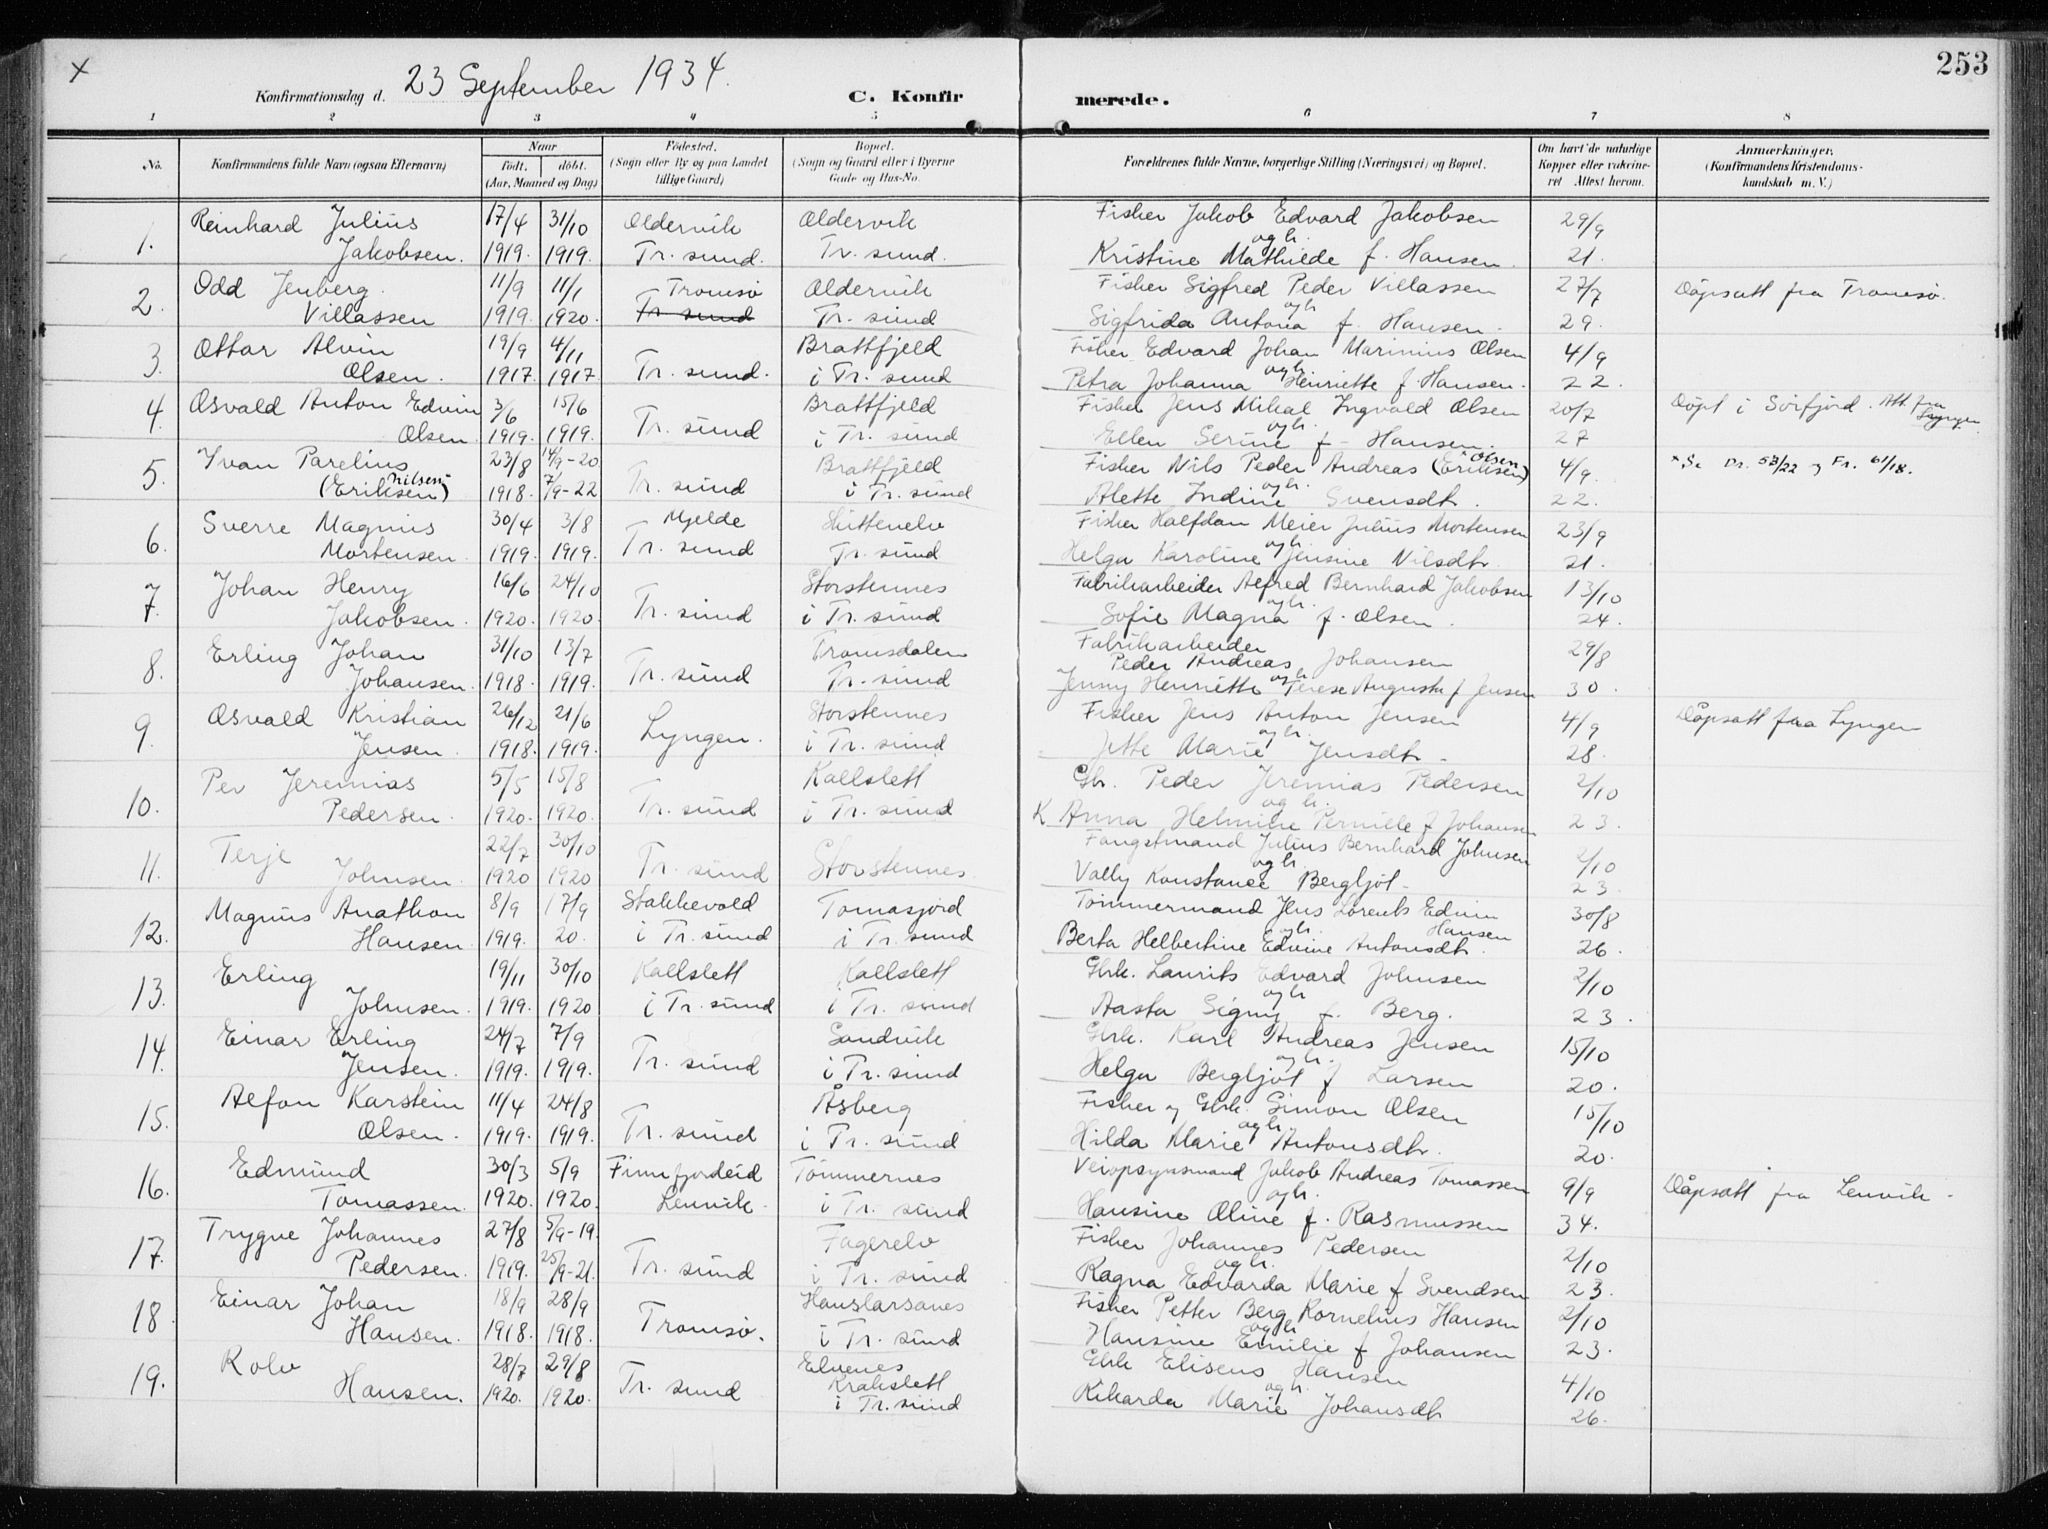 253
x
Konfirmationsdag d. 23 September 1934.
C. Konfirmerede.
1 2 3 4 5 6 7 8
No. Konfirmandens fulde Navn (ogsaa Efternavn) Naar födt. döbt. (Aar, Maaned og Dag) Födested. (Sogn eller By og paa Landet tillige Gaard) Bopæl. (Sogn og Gaard eller i Byerne Gade og Hus-No. Forældrenes fulde Navne, borgerlige Stilling (Næringsvei) og Bopæl. Om havt de naturlige Kopper eller vakcineret Attest herom. Anmærkninger. (Konfirmandens Kristendomskundskab m. V.)
Reinhard Julius 17/4 31/10 Oldervik Oldervik Fisker Jakob Edvard Jakobsen 29/9
1. Jakobsen. 1919. 1919. Tr. sund. Tr. sund. og h. Kristine Mathilde f. Hansen. 21.
Odd Jenberg 11/9 11/1 Tromsø Oldervik Fisker Sigfred Peder Villassen 27/7 Dåpsatt fra Tromsø.
2. Villassen 1919. 1920. Tr. sund Tr. sund og h. Sigfrida Antona f. Hansen. 29.
Ottar Alvin 19/9 4/11 Brattfjeld Fisker Edvard Johan Marinius Olsen 4/9
3. Olsen. 1917. 1917 Tr. sund. i Tr. sund og h. Petra Johanna Henriette f. Hansen. 22.
4. Osvald Anton Edvin 3/6 15/6 Brattfjeld Fisker Jens Mikal Ingvald Olsen 20/7 Döpt i Sörfjord. Att. fra Lyngen
Olsen 1919. 1919. Tr. sund i Tr. sund og h. Ellen Serine f. Hansen. 27
5. Yvan Parelius 23/8 14/9-20 Brattfjeld Fisker Nils Peder Andreas (Eriksen) x Olsen 4/9. x, Se Dr. 53/22 og Fr. 61/18.
(Eriksen) Nilsen 1918. 7/9-22 Tr. sund i Tr. sund og h. Alette Indine Svensdt. 22.
Sverre Magnus 30/4 3/8 Mjelde Huttenelv Fisker Halfdan Meier Julius Mortensen 23/9
6. Mortensen. 1919. 1919. Tr. sund Tr. sund og h. Helga Karoline Jensine Nilsdt. 21.
7. Johan Henry 16/6 24/10 Storstennes Fabrikarbeider Alfred Bernhard Jakobsen 13/10
Jakobsen. 1920. 1920. Tr. sund i Tr. sund og h. Sofie Magna f. Olsen. 24.
Erling Johan 31/10 13/7 Tromsdalen Fabrikarbeider Peder Andreas Johansen 29/8
8. Johansen. 1918. 1919. Tr. sund Tr. sund og h. Jenny Henriette Terese Augusta f Jensen 30.
Osvald Kristian 26/12 21/6 Storstennes Fisker Jens Anton Jensen 4/9 Dåpsatt fra Lyngen
9. Jensen. 1918. 1919. Lyngen. i Tr. sund og h. Jette Marie Jensdt. 28.
Per Jeremias 5/5 15/8 Kallslett Gbr. Peder Jeremias Pedersen 2/10
10. Pedersen. 1920. 1920. Tr. sund i Tr. sund og h. K Anna Helmine Pernille f Johansen 23.
Terje 22/7 30/10 Fangstmand Julius Bernhard Johnsen 2/10
11. Johnsen. 1920 1920 Tr. sund Storstennes. og h. Vally Konstance Bergljot. 23.
Magnus Anathon 8/9 17/9 Stakkevold Tomasjord Tömmermand Jens Lorents Edvin Hansen 30/8
12. Hansen 1919. 20. i Tr. sund i Tr. sund og h. Berta Helbertine Edvine Antonsdt. 26.
Erling 19/11 30/10 Kallslett Kallslett Gbrk. Laurits Edvard Johnsen 2/10
13. Johnsen. 1919. 1920 i Tr. sund i Tr. sund og h. Aasta Signy f. Berg. 23.
Einar Erling 24/7 7/9 Sandvik Gbrk. Karl Andreas Jensen 15/10
14. Jensen. 1919. 1919. Tr. sund i Tr. sund og h. Helga Bergljot f Larsen 20.
Alfon Karstein 11/4 24/8 Åsberg Fisker og Gbrk. Simon Olsen 15/10
15. Olsen. 1919. 1919. Tr. sund i Tr. sund og h. Hilda Marie Antonsdt. 20.
Edmund 30/3 5/9 Finnfjordeid Tömmernes Veiopsynsmand Jakob Andreas Tomassen 9/9 Dåpsatt fra Lenvik.
16. Tomassen. 1920. 1920. Lenvik. i Tr. sund og h. Hansine Oline f. Rasmussen 34.
Trygve Johannes 27/8 5/9-19. Fagerelv Fisker Johannes Pedersen 2/10
17. Pedersen. 1919. 25/9-21. Tr. sund i Tr. sund og h. Ragna Edvarda Marie f Svendsen 23.
Einar Johan 18/9 28/9 Hanslarsanes Fisker Petter Berg Kornelius Hansen 2/10
18. Hansen. 1918. 1918. Tromsø. i Tr. sund og h. Hansine Emilie f Johansen 23.
Rolv 28/7 29/8 Elvenes Krakslett Gbrk Eliseus Hansen 4/10
19. Hansen. 1920. 1920. Tr. sund i Tr. sund og h. Rikarda Marie Johansdt. 26.